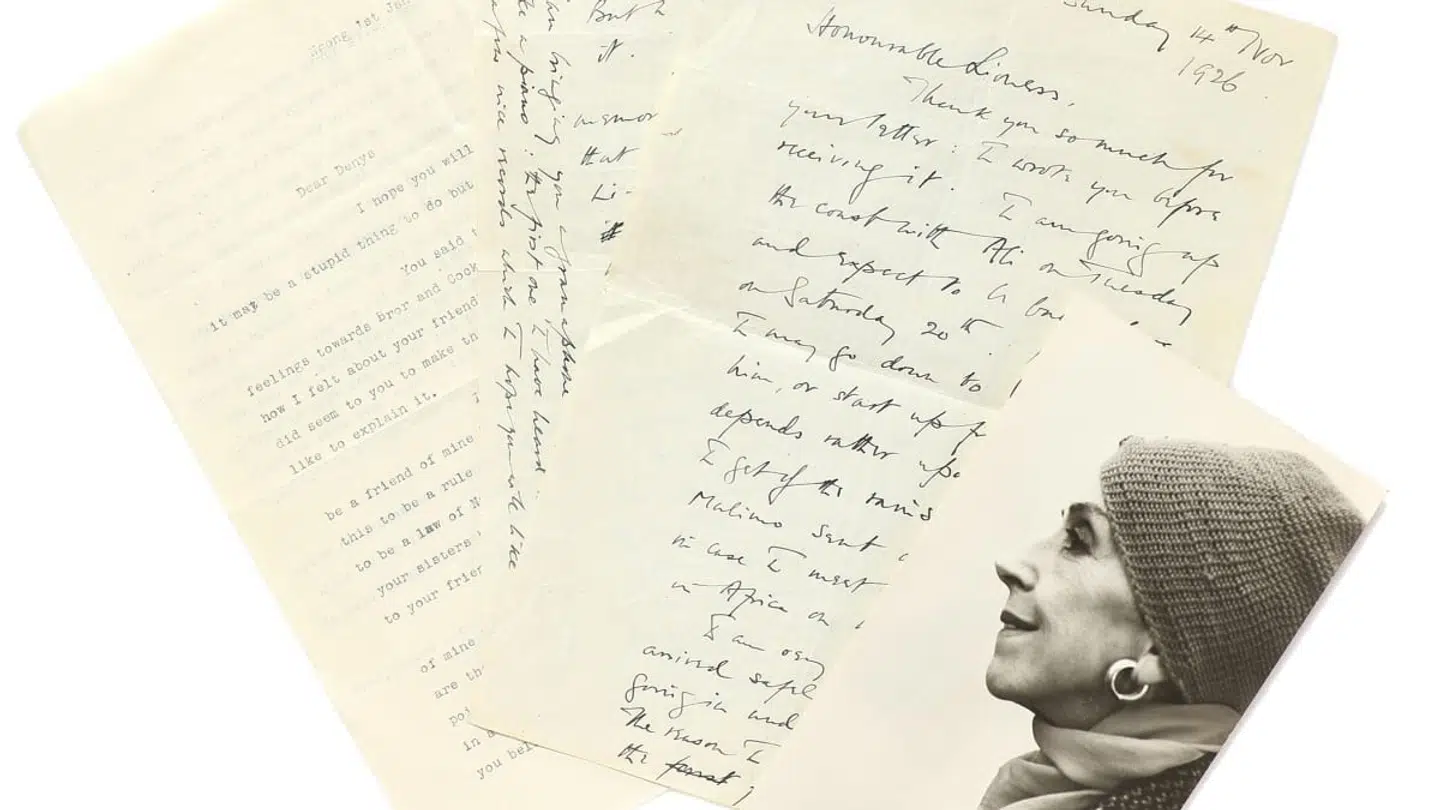 Ngong 1st Jan
Dear Denys
I hope you will
it may be a stupid thing to do but
You said t
feelings towards Bror and Cock
how I felt about your friend
did seem to you to make th
like to explain it.
be a friend of mine
this to be a rule
to be a law of N
your sisters
to your frien
of mine
are th
poi
in a
you bel
But
it.
memor
that
Li-
am bringing you a gramophone
like a piano: the first one I have heard.
nice records which I hope you will like
Sunday 14th Nov
1926.
Honourable Lioness,
Thank you so much for
your letter: I wrote you before
receiving it. I am going up
the coast with Ali on Tuesday
and expect to be bac
on Saturday 20th.
I may go down to
him, or start up f
depends rather upo
I get of the rains
Malimo sent
in case I meet
in Africa on
I am
arrived safel
going in and
The reason I
the